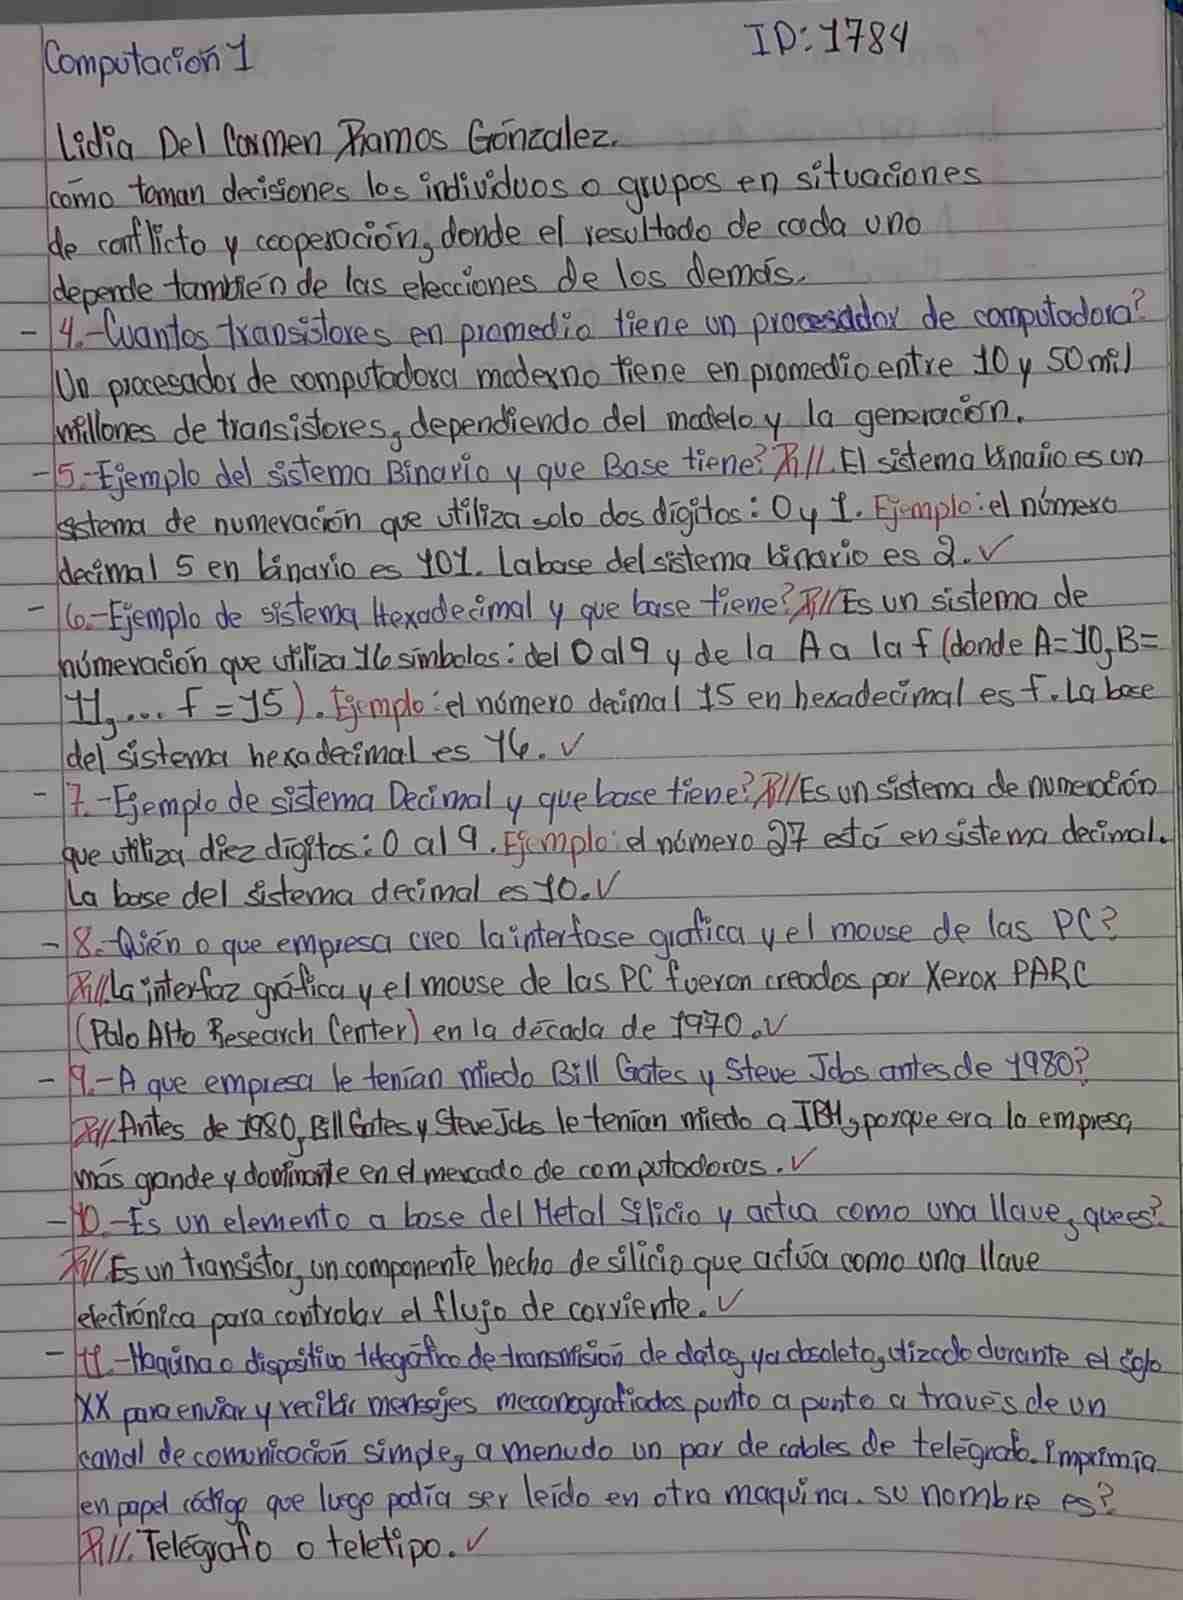 Computación 1
ID: 1784
Lidia Del Carmen Ramos Gónzalez.
cómo toman decisiones los individuos o grupos en situaciones
de conflicto y cooperación, donde el resultado de cada uno
depende también de las elecciones de los demás.
- 4.-Cuantos transistores en promedio tiene un procesador de computadora?
Un procesador de computadora moderno tiene en promedio entre 10 y 50 mil
millones de transistores, dependiendo del modelo y la generación.
- 5.-Ejemplo del sistema Binario y que Base tiene? R// El sistema binario es un
sistema de numeración que utiliza solo dos dígitos: 0 y 1. Ejemplo: el número
decimal 5 en binario es 101. La base del sistema binario es 2. ✓
- 6.-Ejemplo de sistema Hexadecimal y que base tiene? R// Es un sistema de
númeración que utiliza 16 símbolos: del 0 al 9 y de la A a la f (donde A=10, B=
11, ... f = 15). Ejemplo: el número decimal 15 en hexadecimal es f. La base
del sistema hexadecimal es 16. ✓
- 7.-Ejemplo de sistema Decimal y que base tiene? R// Es un sistema de numeración
que utiliza diez dígitos: 0 al 9. Ejemplo: el número 27 está en sistema decimal.
La base del sistema decimal es 10. ✓
- 8.-Quién o que empresa creo la interfase grafica y el mouse de las PC?
R// La interfaz gráfica y el mouse de las PC fueron creados por Xerox PARC
(Palo Alto Research Center) en la década de 1970. ✓
- 9.-A que empresa le tenían miedo Bill Gates y Steve Jobs antes de 1980?
R// Antes de 1980, Bill Gates y Steve Jobs le tenían miedo a IBM, porque era la empresa
más grande y dominante en el mercado de computadoras. ✓
- 10.-Es un elemento a base del Metal Silicio y actua como una llave, que es?
R// Es un transistor, un componente hecho de silicio que actúa como una llave
electrónica para controlar el flujo de corriente. ✓
- 11.-Maquina o dispositivo telegráfico de transmisión de datos, ya obsoleto, utizado durante el siglo
XX para enviar y recibir mensajes mecanografiados punto a punto a través de un
canal de comunicación simple, a menudo un par de cables de telégrafo. Imprimía
en papel código que luego podía ser leído en otra maquina. su nombre es?
R//. Telégrafo o teletipo. ✓